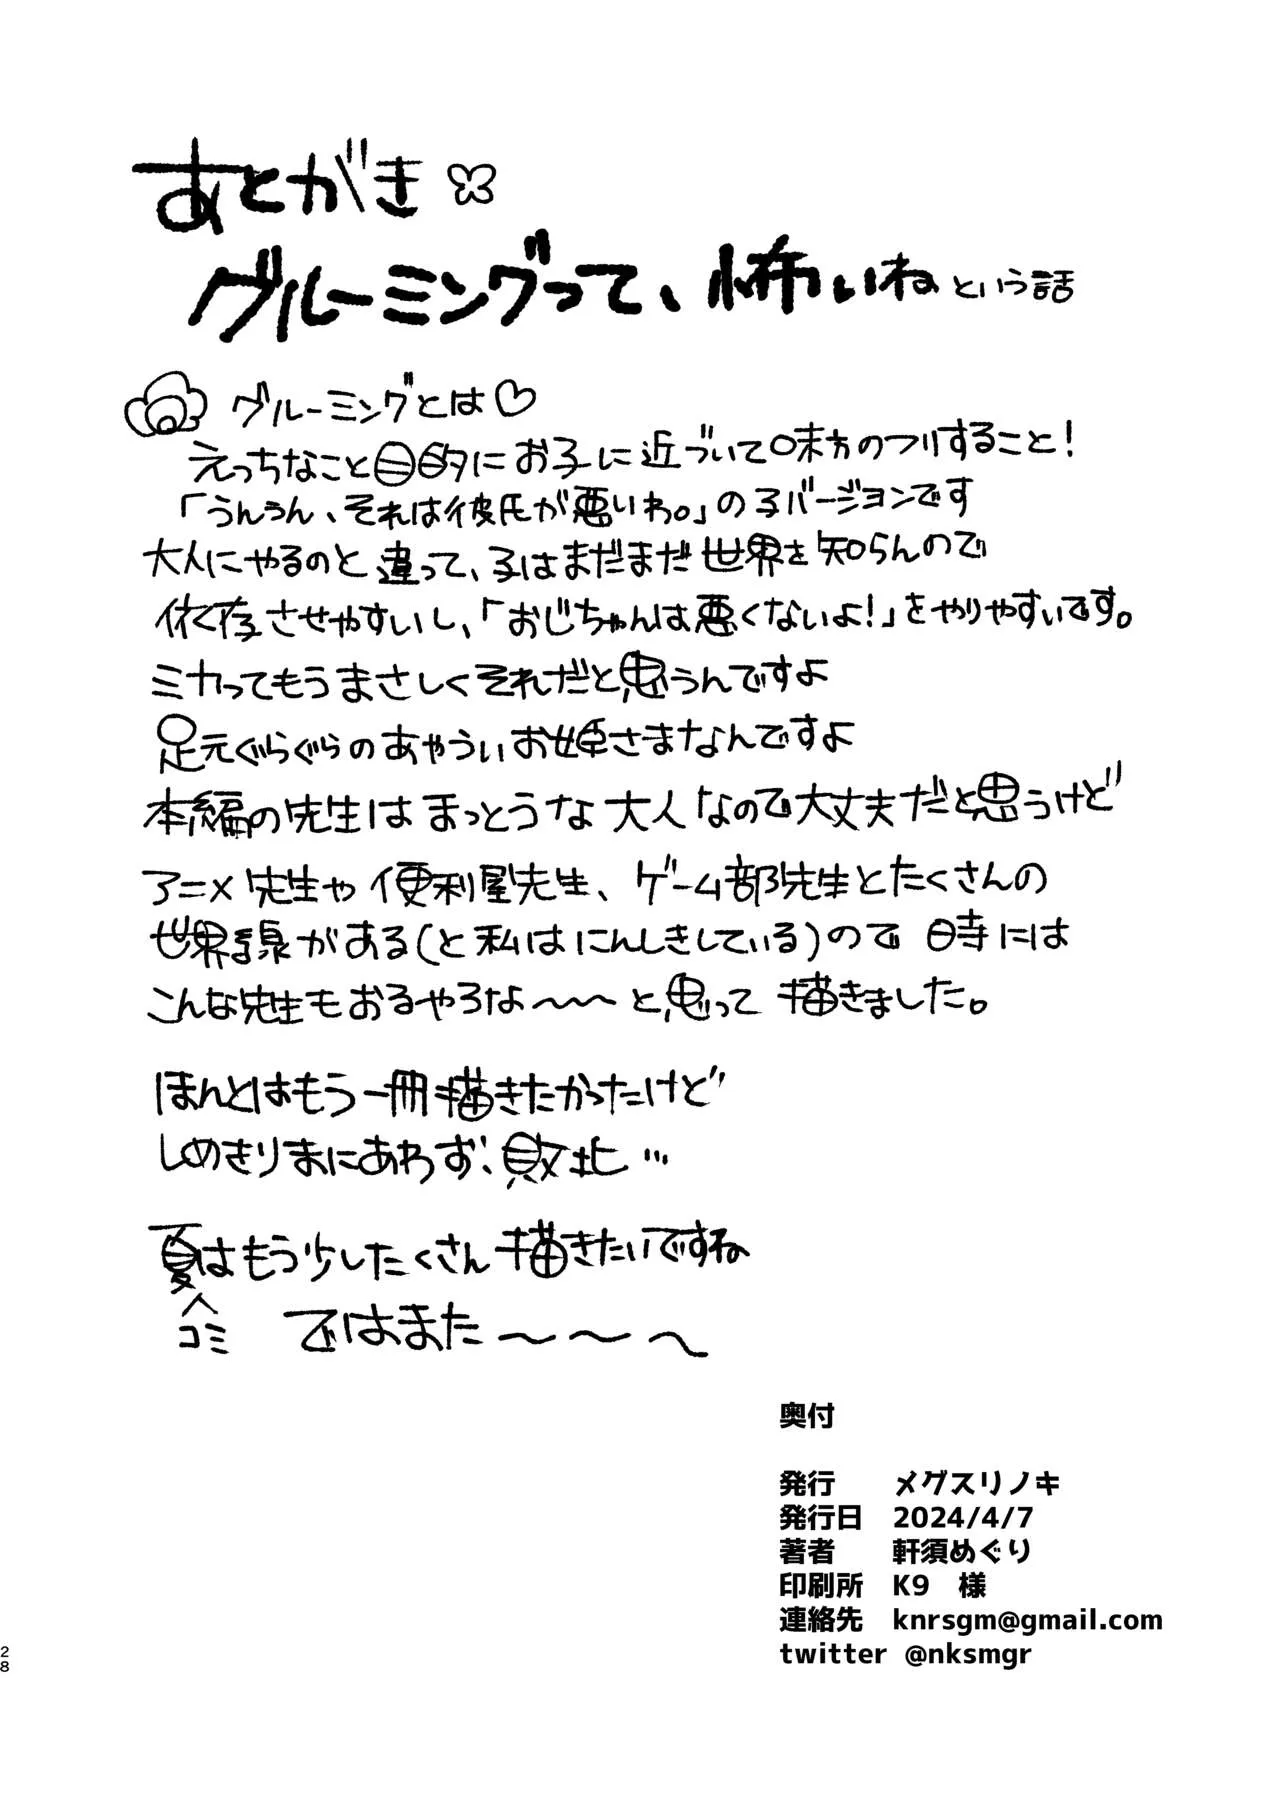 あとがき
グルーミングって、怖いねという話
グルーミングとは♡
えっちなこと目的にお子に近づいて味方のフリすること！
「うんうん、それは彼氏が悪いわ。」の子バージョンです
大人にやるのと違って、子はまだまだ世界を知らんので
依存させやすいし、「おじちゃんは悪くないよ！」をやりやすいです。
ミカってもうまさしくそれだと思うんですよ
足元ぐらぐらのあやういお姫さまなんですよ
本編の先生はまっとうな大人なので大丈夫だと思うけど
アニメ先生や便利屋先生、ゲーム部先生とたくさんの
世界線がある(と私はにんしきしている)ので時には
こんな先生もおるやろな〜〜〜と思って描きました。
ほんとはもう一冊描きたかったけど
しめきりまにあわず、敗北…
夏はもう少したくさん描きたいですね
コミ
ではまた〜〜〜
奥付
発行 メグスリノキ
発行日 2024/4/7
著者 軒須めぐり
印刷所 K9 様
連絡先 knrsgm@gmail.com
twitter @nksmgr
28